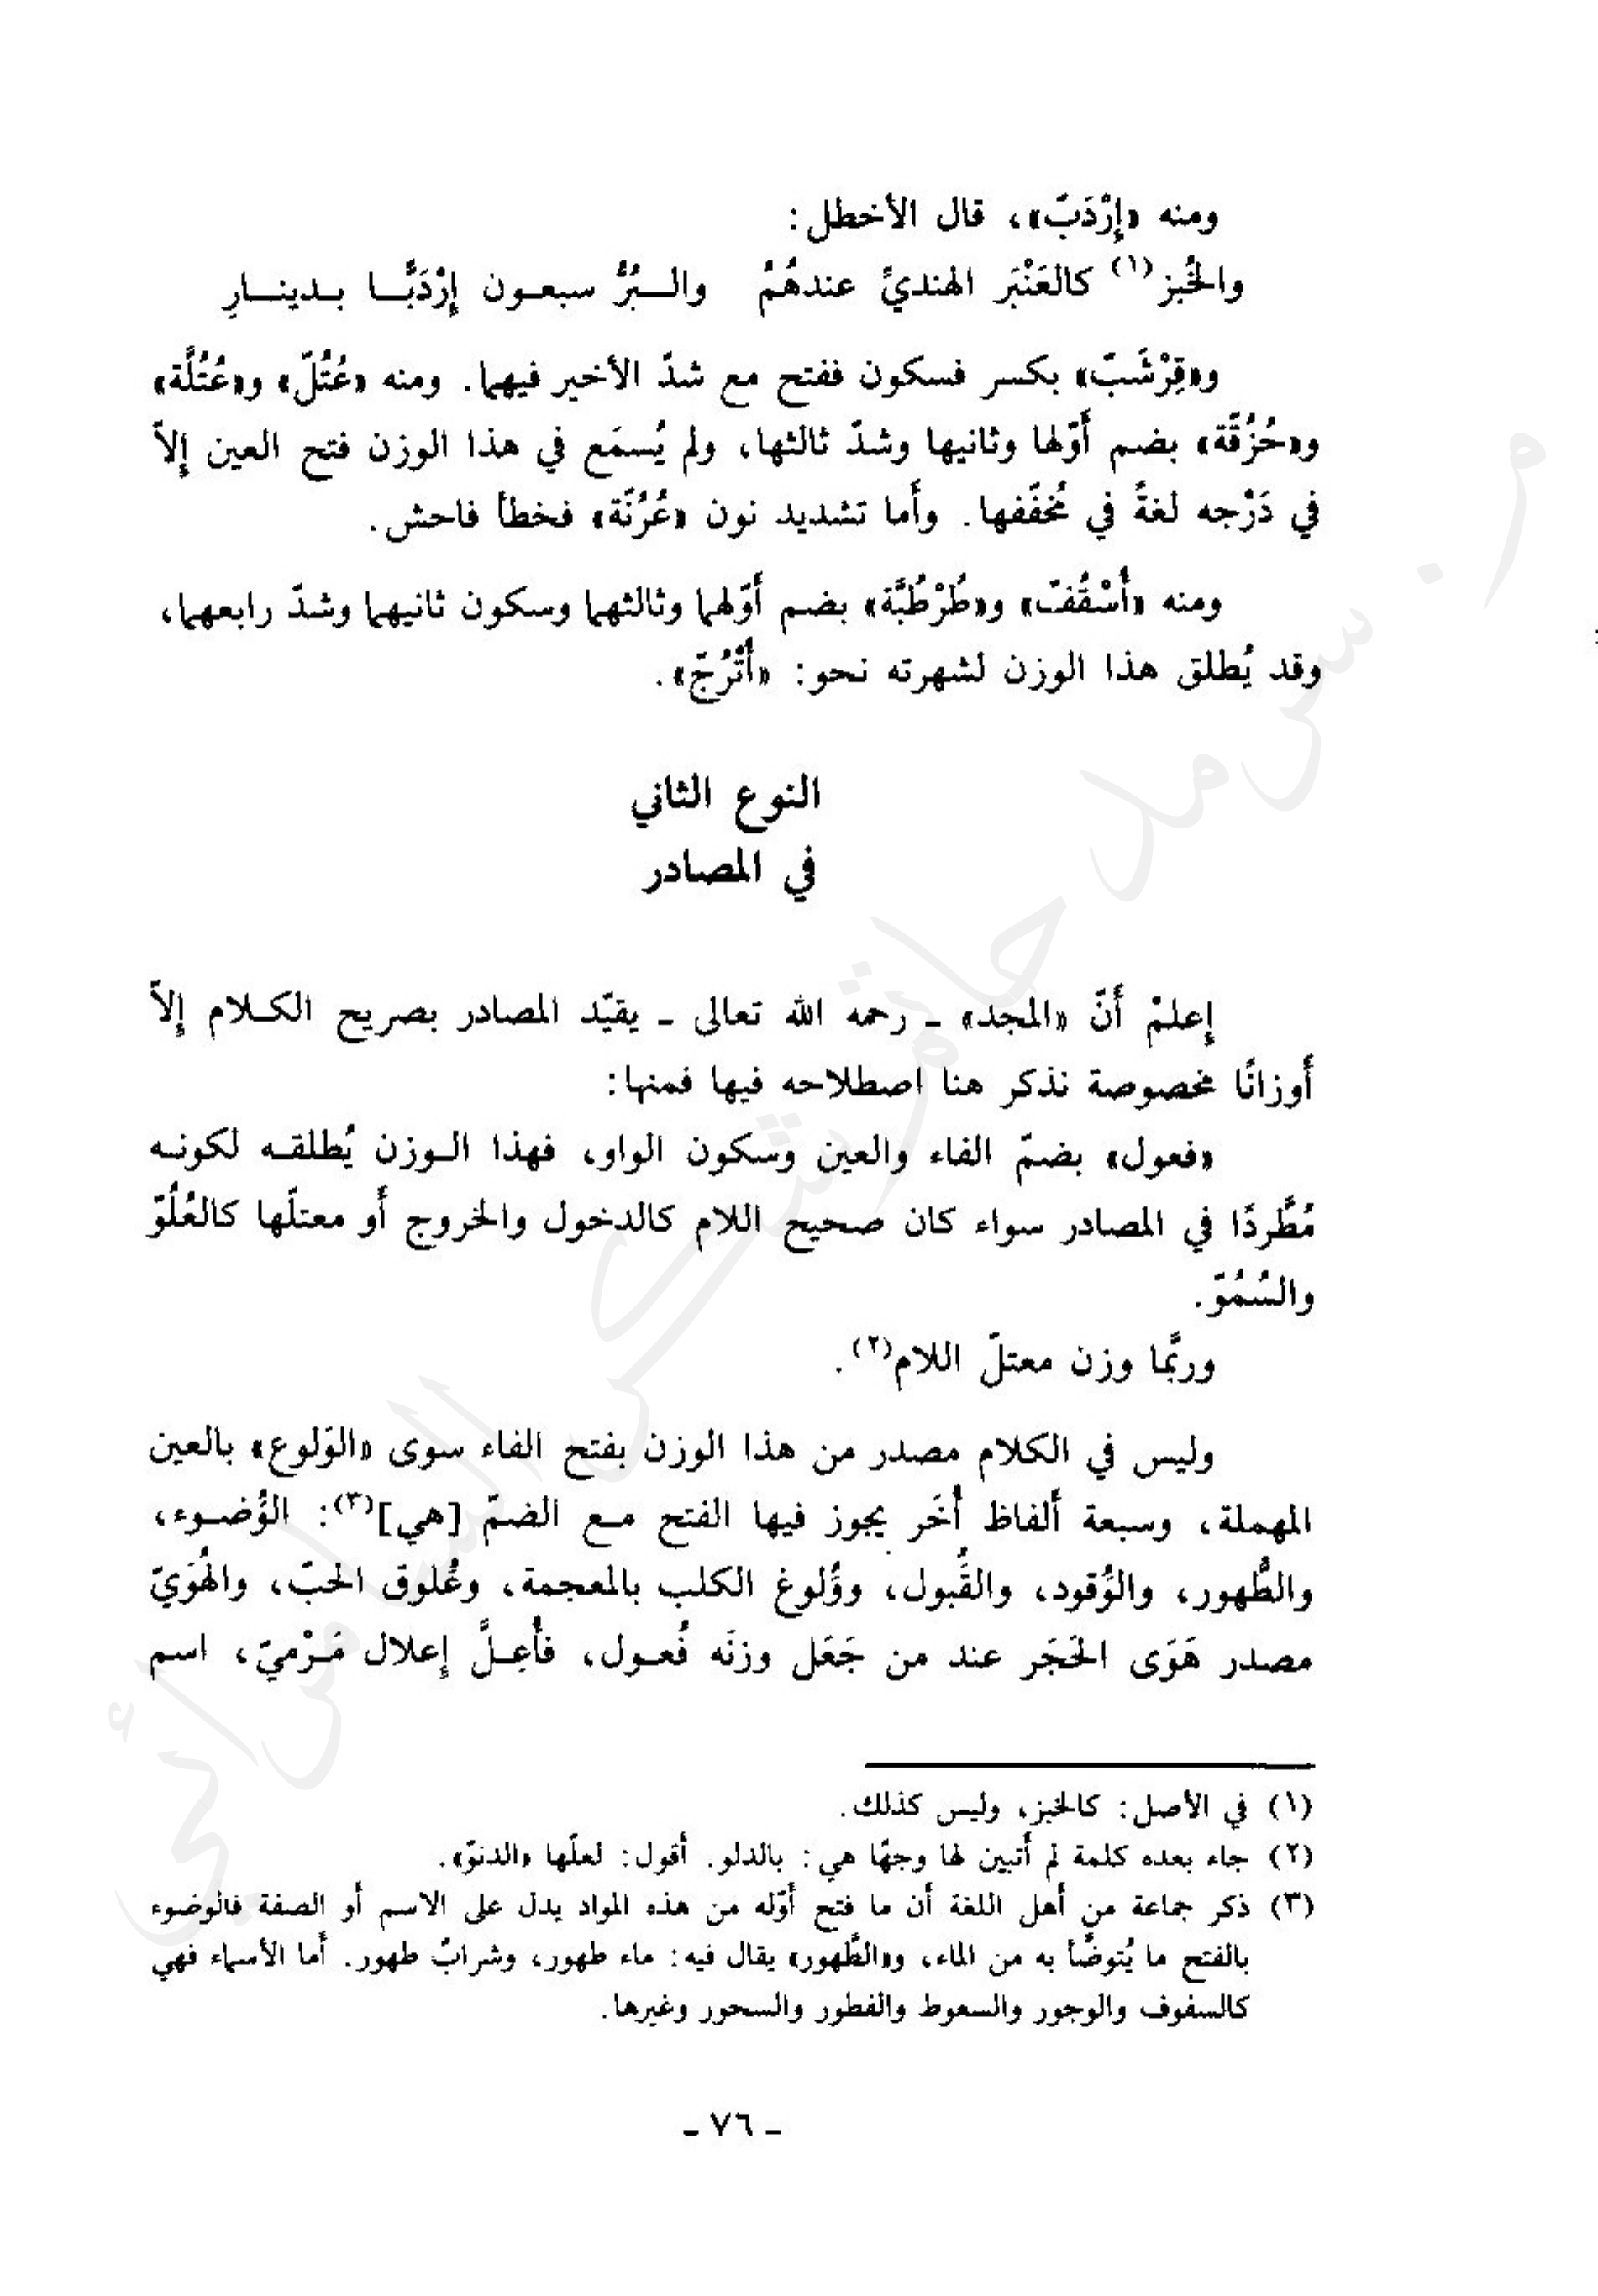 ومنه «إِرْدَبّ»، قال الأخطل:
والخُبز(١) كالعَنْبَر الهنديِّ عندهُمُ والـبُرُّ سبعـون إِرْدَبًّـا بـدينـارِ
و«قِرْشَبّ» بكسر فسكون ففتح مع شدّ الأخير فيهما. ومنه «عُتُلّ» و«عُتُلَّة»
و«حُزُقَّة» بضم أَوّلها وثانيها وشدّ ثالثها، ولم يُسمَع في هذا الوزن فتح العين إِلاّ
في دَرْجه لغةً في مُخفَّفها. وأَما تشديد نون «عُرُنَّة» فخطأ فاحش.
ومنه «أُسْقُفّ» و«طُرْطُبَّة» بضم أَوّلهما وثالثهما وسكون ثانيهما وشدّ رابعهما،
وقد يُطلق هذا الوزن لشهرته نحو: «أُتْرُجّ».
النوع الثاني
في المصادر
إِعلمْ أَنّ «المجد» ـ رحمه الله تعالى ـ يقيّد المصادر بصريح الكـلام إِلاّ
أَوزانًا مخصوصة نذكر هنا اصطلاحه فيها فمنها:
«فعول» بضمّ الفاء والعين وسكون الواو، فهذا الـوزن يُطلقـه لكونـه
مُطَّردًا في المصادر سواء كان صحيح اللام كالدخول والخروج أَو معتلّها كالعُلُوّ
والسُمُوّ.
وربَّما وزن معتلّ اللام(٢).
وليس في الكلام مصدر من هذا الوزن بفتح الفاء سوى «الوَلوع» بالعين
المهملة، وسبعة أَلفاظ أُخَر يجوز فيها الفتح مـع الضمّ [هي](٣): الوُضـوء،
والطُّهور، والوُقود، والقُبول، ووُلوغ الكلب بالمعجمة، وعُلوق الحبّ، والهُوَيّ
مصدر هَوَى الحَجَر عند من جَعَل وزنَه فُعـول، فأُعِـلَّ إِعلال مَـرْميّ، اسم
(١) في الأصل: كالخبز، وليس كذلك.
(٢) جاء بعده كلمة لم أتبين لها وجهًا هي: بالدلو. أقول: لعلّها «الدنوّ».
(٣) ذكر جماعة من أهل اللغة أن ما فتح أوّله من هذه المواد يدل على الاسم أو الصفة فالوضوء
بالفتح ما يُتوضَّأ به من الماء، و«الطَّهور» يقال فيه: ماء طهور، وشرابٌ طهور. أما الأسماء فهي
كالسفوف والوجور والسعوط والفطور والسحور وغيرها.
ـ ٧٦ ـ